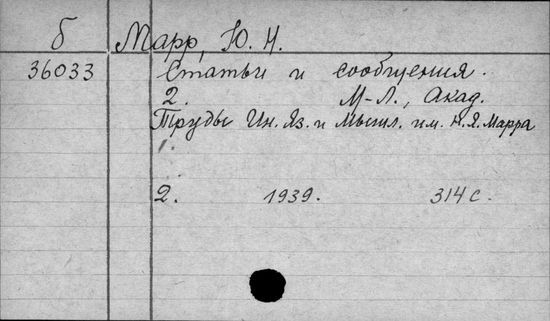 б Марр, Ю. Н.
36033 Статьи и сообщения.
2. М-Л., Акад.
Труды Ин. Яз. и Мышл. им. Н.Я. Марра
1.
2. 1939. 314 с.